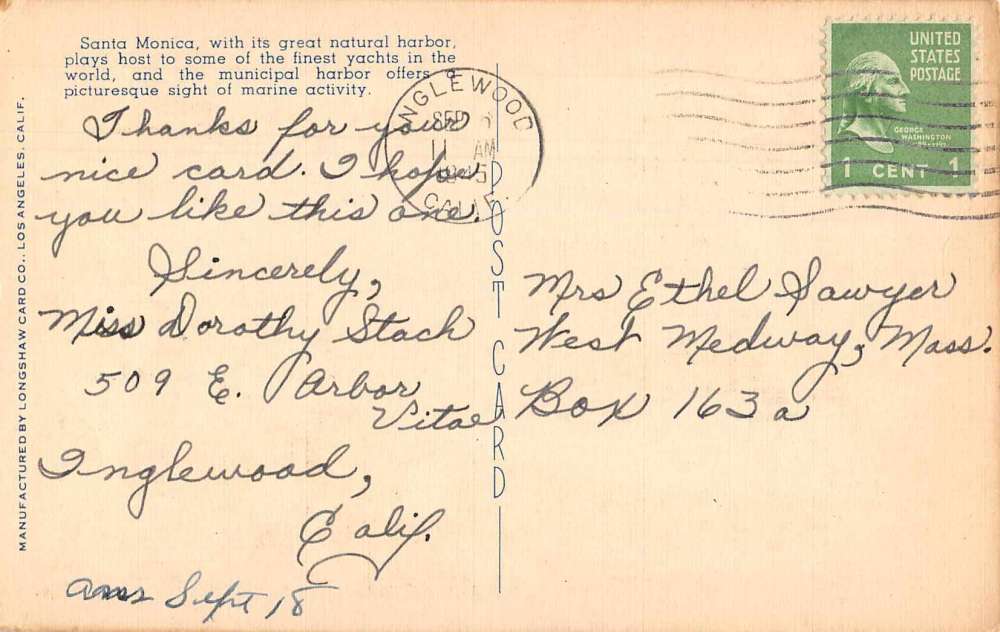 Santa Monica, with its great natural harbor,
plays host to some of the finest yachts in the
world, and the municipal harbor offers a
picturesque sight of marine activity.
Thanks for your
nice card. I hope
you like this one.
Sincerely,
Miss Dorothy Stach
509 E. Arbor
Vitae
Inglewood,
Calif.
Sept 18
MANUFACTURED BY LONGSHAW CARD CO., LOS ANGELES, CALIF.
POST CARD
INGLEWOOD
SEP
11 AM
CALIF.
UNITED
STATES
POSTAGE
GEORGE
WASHINGTON
1 CENT 1
Mrs Ethel Sawyer
West Medway, Mass.
Box 163a